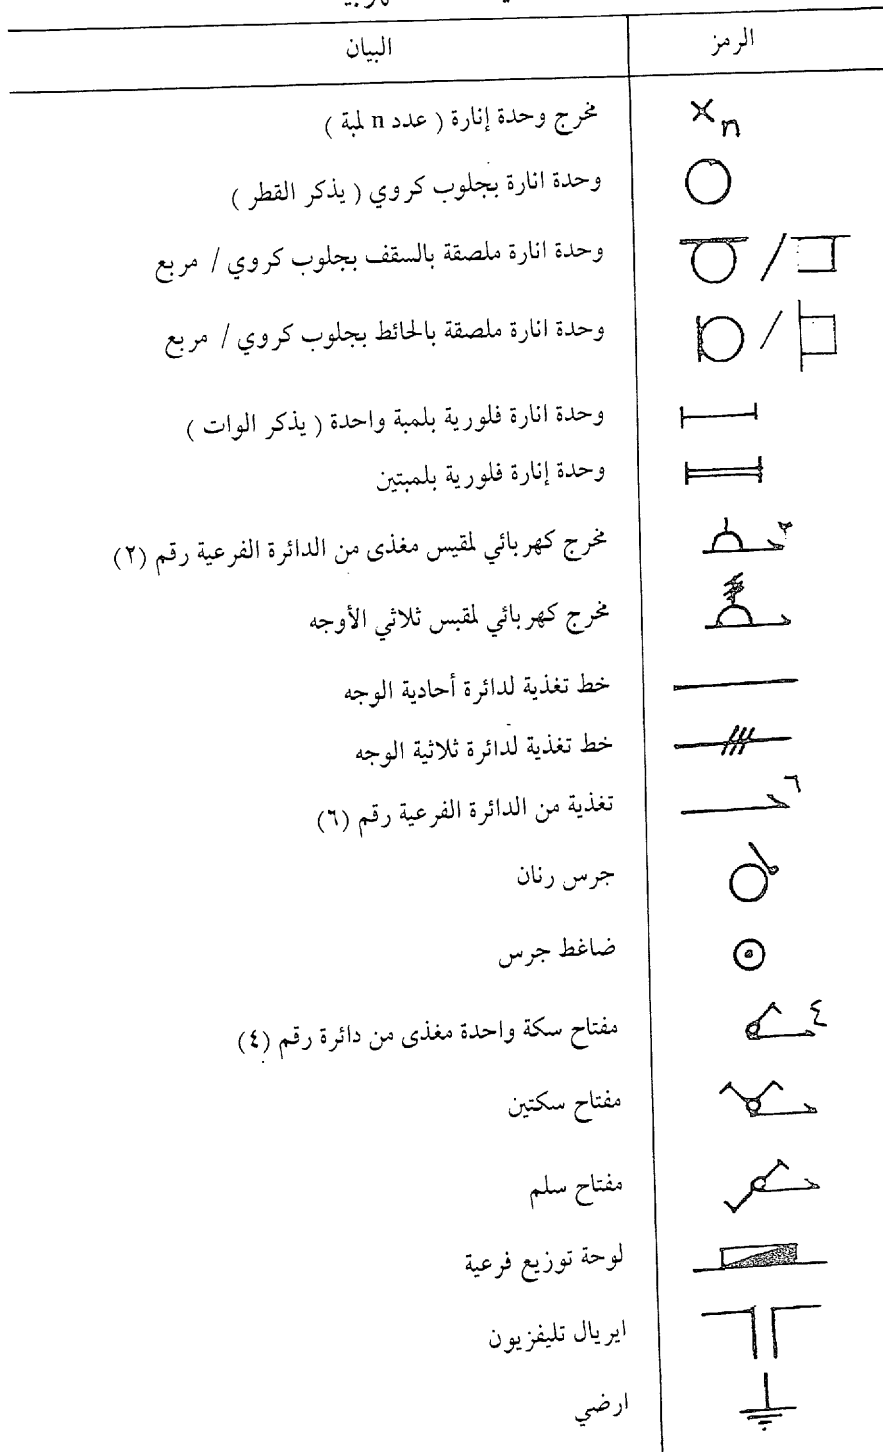 الرمز البيان
×n مخرج وحدة إنارة ( عدد n لمبة )
وحدة انارة بجلوب كروي ( يذكر القطر )
وحدة انارة ملصقة بالسقف بجلوب كروي / مربع
وحدة انارة ملصقة بالحائط بجلوب كروي / مربع
وحدة انارة فلورية بلمبة واحدة ( يذكر الوات )
وحدة إنارة فلورية بلمبتين
٢ مخرج كهربائي لمقبس مغذى من الدائرة الفرعية رقم (٢)
مخرج كهربائي لمقبس ثلاثي الأوجه
خط تغذية لدائرة أحادية الوجه
خط تغذية لدائرة ثلاثية الوجه
٦ تغذية من الدائرة الفرعية رقم (٦)
جرس رنان
ضاغط جرس
٤ مفتاح سكة واحدة مغذى من دائرة رقم (٤)
مفتاح سكتين
مفتاح سلم
لوحة توزيع فرعية
ايريال تليفزيون
ارضي